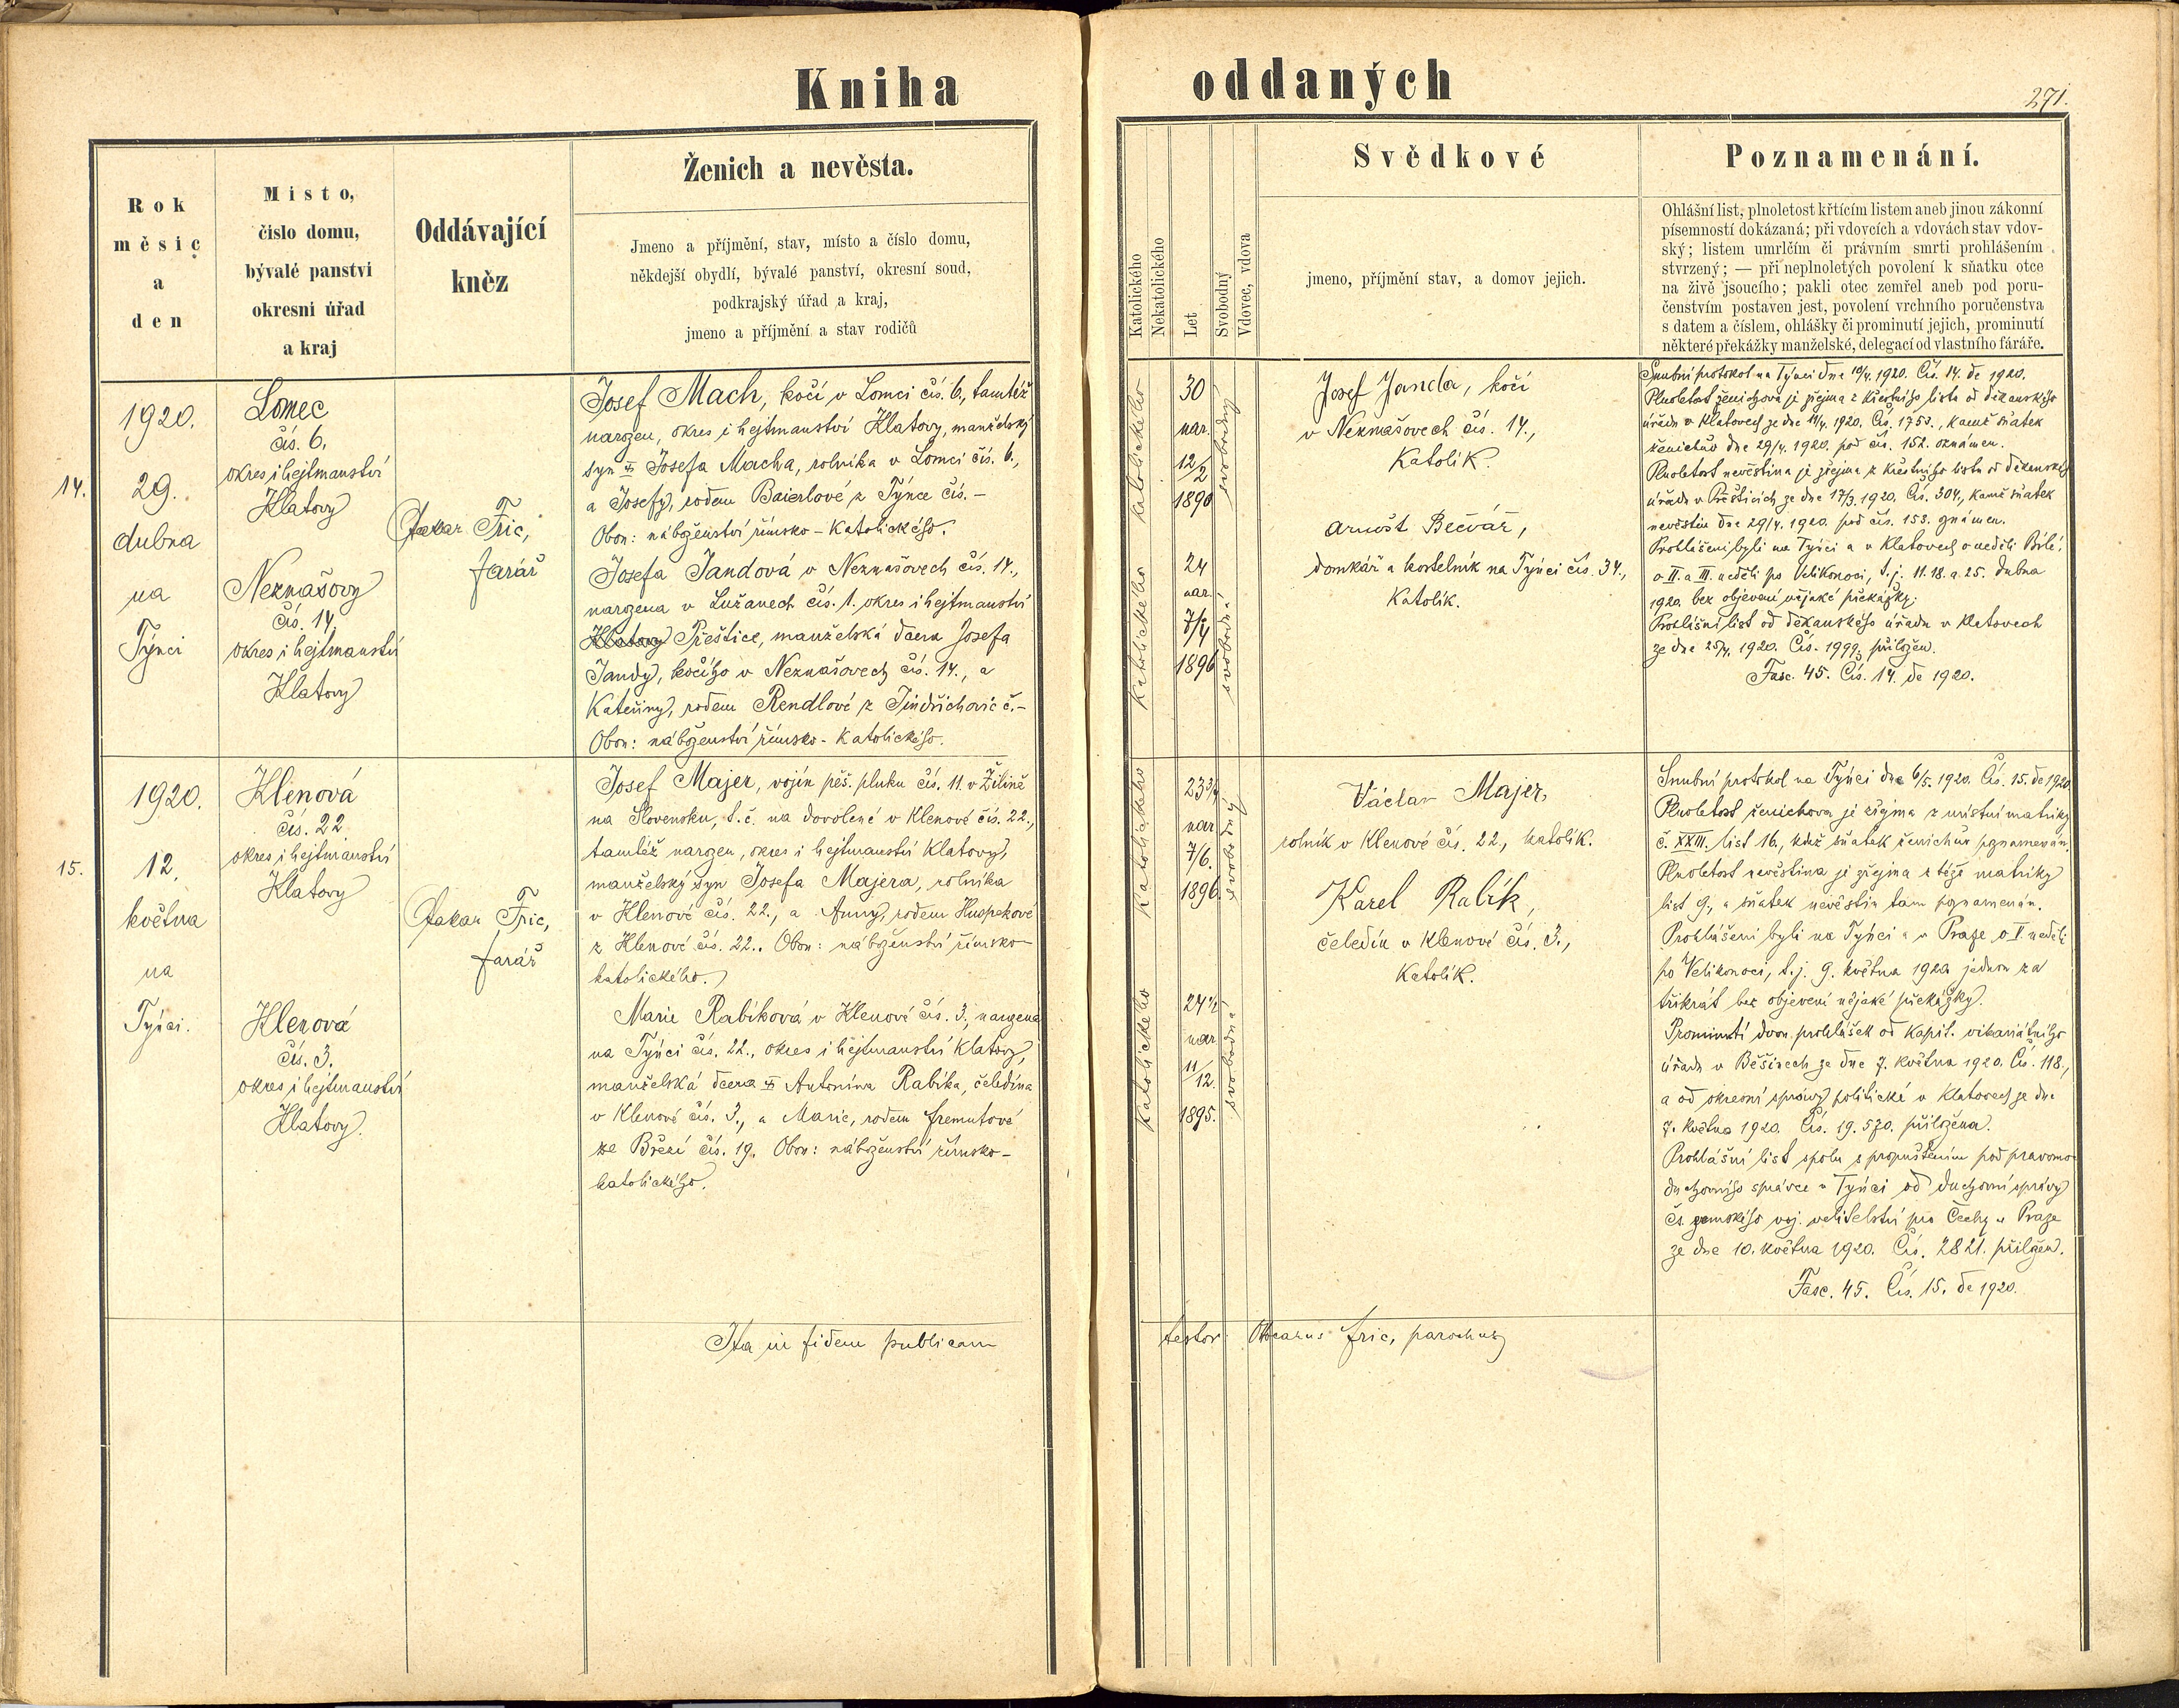 Kniha
oddaných
271.
Rok
měsíc
a
den
Místo,
číslo domu,
bývalé panství
okresní úřad
a kraj
Oddávající
kněz
Ženich a nevěsta.
Jmeno a příjmění, stav, místo a číslo domu,
někdejší obydlí, bývalé panství, okresní soud,
podkrajský úřad a kraj,
jmeno a příjmění a stav rodičů
Katolického
Nekatolického
Let
Svobodný
Vdovec, vdova
Svědkové
jmeno, příjmění stav, a domov jejich.
Poznamenání.
Ohlášní list, plnoletost křtícím listem aneb jinou zákonní
písemností dokázaná; při vdovcích a vdovách stav vdov-
ský; listem umrlčím či právním smrti prohlášením
stvrzený; — při neplnoletých povolení k sňatku otce
na živě jsoucího; pakli otec zemřel aneb pod poru-
čenstvím postaven jest, povolení vrchního poručenstva
s datem a číslem, ohlášky či prominutí jejich, prominutí
některé překážky manželské, delegací od vlastního faráře.
14.
1920.
29.
dubna
na
Týnci
Lomec
čís. 6.
okres i hejtmanství
Klatovy
Neznašovy
čís. 14.
okres i hejtmanství
Klatovy
Otakar Fric,
farář
Josef Mach, kočí v Lomci čís. 6, tamtéž
narozen, okres i hejtmanství Klatovy, manželský
syn Josefa Macha, rolníka v Lomci čís. 6.,
a Josefy, rodem Baierlové z Týnce čís. –
Obou: náboženství římsko-katolického.
Josefa Jandová v Neznašovech čís. 14.,
narozena v Lužanech čís. 1. okres i hejtmanství
Klatovy Přeštice, manželská dcera Josefa
Jandy, kočího v Neznašovech čís. 14., a
Kateřiny, rodem Rendlové z Jindřichovic č. –
Obou: náboženství římsko-katolického.
katolického
30
nar.
12/2
1890
svobodný
katolického
24
nar.
7/4
1896
svobodná
Josef Janda, kočí
v Neznašovech čís. 14.,
katolík.
Arnošt Bečvář,
domkář a kostelník na Týnci čís. 34.,
katolík.
Snubní protokol na Týnci dne 10/4. 1920. Čís. 14. de 1920.
Plnoletost ženichova je zřejma z křestního listu od děkanského
úřadu v Klatovech ze dne 1753., kamž sňatek
ženichův dne 29/4. 1920. pod čís. 152. oznámen.
Plnoletost nevěstina je zřejma z křestního listu od děkanského
úřadu v Přešticích ze dne 17/3. 1920. Čís. 304., kamž sňatek
nevěstin dne 29/4. 1920. pod čís. 153. oznámen.
Prohlášeni byli na Týnci a v Klatovech o neděli Bílé,
o II. a III. neděli po Velikonoci, t. j. 11. 18. a 25. dubna
1920. bez objevení nějaké překážky.
Prohlášní list od děkanského úřadu v Klatovech
ze dne 25/4. 1920. Čís. 1999. přiložen.
Fasc. 45. Čís. 14. de 1920.
15.
1920.
12.
května
na
Týnci.
Klenová
čís. 22.
okres i hejtmanství
Klatovy
Klenová
čís. 3.
okres i hejtmanství
Klatovy.
Otakar Fric,
farář
Josef Majer, vojín pěš. pluku čís. 11. v Žilině
na Slovensku, t. č. na dovolené v Klenové čís. 22.,
tamtéž narozen, okres i hejtmanství Klatovy,
manželský syn Josefa Majera, rolníka
v Klenové čís. 22., a Anny, rodem
z Klenové čís. 22.. Obou: náboženství římsko-
katolického.
Marie Rabíková v Klenové čís. 3., narozena
na Týnci čís. 22., okres i hejtmanství Klatovy,
manželská dcera Antonína Rabíka, čeledína
v Klenové čís. 3., a Marie, rodem Fremutové
ze Březí čís. 19. Obou: náboženství římsko-
katolického.
katolického
23 3/4
nar
7/6.
1896.
svobodný
katolického
24 1/2
nar
11/12.
1895.
svobodná
Václav Majer,
rolník v Klenové čís. 22., katolík.
Karel Rabík,
čeledín v Klenové čís. 3.,
katolík.
Snubní protokol na Týnci dne 6/5. 1920. Čís. 15. de 1920
Plnoletost ženichova je zřejma z místní matriky
č. XXIII. list 16., kdež sňatek ženichův poznamenán.
Plnoletost nevěstina je zřejma z téže matriky
list 9., a sňatek nevěstin tam poznamenán.
Prohlášeni byli na Týnci a v Praze o V. neděli
po Velikonoci, t. j. 9. května 1920 jednou za
třikrát bez objevení nějaké překážky.
Prominutí dvou prohlášek od kapit. vikariátního
úřadu v Běšinech ze dne 7. května 1920. Čís. 118.,
a od okresní správy politické v Klatovech ze dne
7. května 1920. Čís. 19.570. přiložena.
Prohlášní list spolu s propuštěním pod pravomoc
duchovního správce v Týnci od duchovní správy
čs. zemského voj. velitelství pro Čechy v Praze
ze dne 10. května 1920. Čís. 2821. přiložen.
Fasc. 45. Čís. 15. de 1920.
Ita in fidem publicam
testor: Ottocarus Fric, parochus